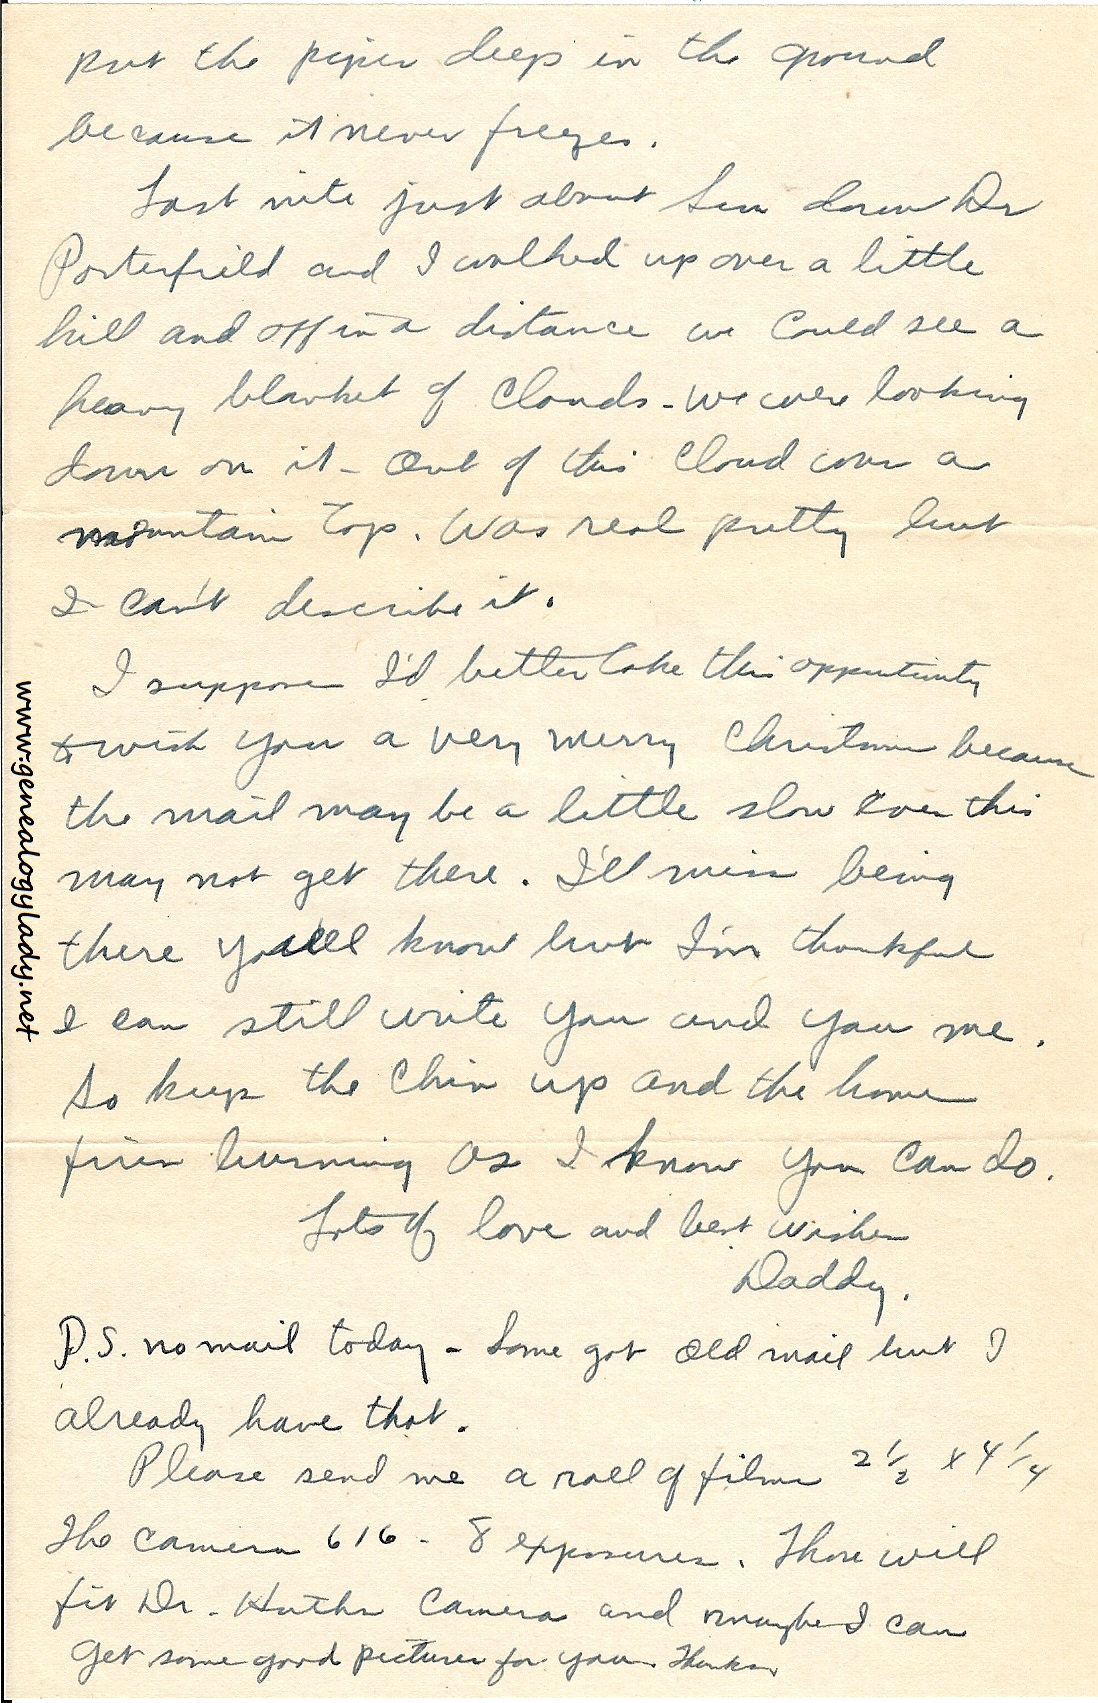 put the pipes deep in the ground
because it never freezes.
Last nite just about Sun down Dr
Porterfield and I walked up over a little
hill and off in a distance we could see a
heavy blanket of Clouds - we were looking
down on it - Out of this Cloud came a
mountain Top. Was real pretty but
I can't describe it.
I suppose I'd better take this opportunity
to wish you a very merry Christmas because
the mail may be a little slow & even this
may not get there. I'll miss being
there you'll know but I'm thankful
I can still write you and you me.
So keep the Chin up and the home
fires burning as I know you can do.
Lots of love and best wishes
Daddy.
P.S. no mail today - Some got old mail but I
already have that.
Please send me a roll of films 2 1/2 x 4 1/4
The camera 616 - 8 exposures. Those will
fit Dr. camera and maybe I can
get some good pictures for you. Thanks
www.genealogylady.net